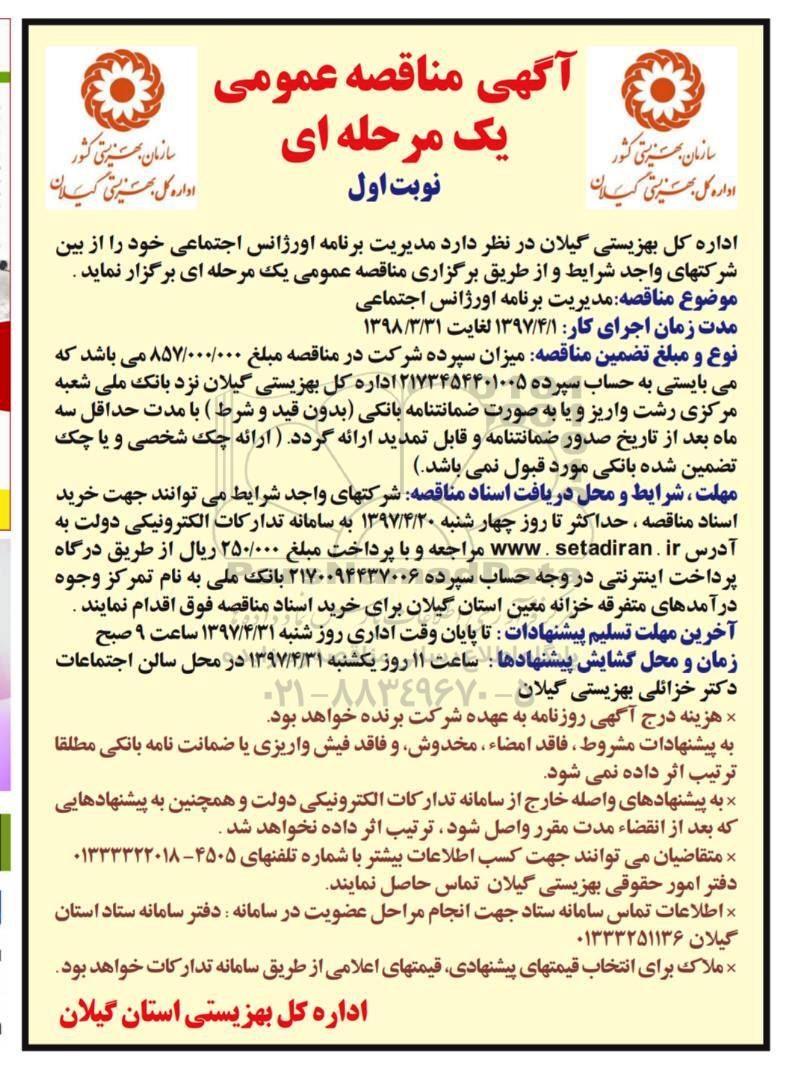 آگهی مناقصه عمومی
یک مرحله ای
نوبت اول
سازمان بهزیستی کشور
اداره کل بهزیستی گیلان
سازمان بهزیستی کشور
اداره کل بهزیستی گیلان
اداره کل بهزیستی گیلان در نظر دارد مدیریت برنامه اورژانس اجتماعی خود را از بین
شرکتهای واجد شرایط و از طریق برگزاری مناقصه عمومی یک مرحله ای برگزار نماید .
موضوع مناقصه:مدیریت برنامه اورژانس اجتماعی
مدت زمان اجرای کار: ۱۳۹۷/۴/۱ لغایت ۱۳۹۸/۳/۳۱
نوع و مبلغ تضمین مناقصه: میزان سپرده شرکت در مناقصه مبلغ ۸۵۷/۰۰۰/۰۰۰ می باشد که
می بایستی به حساب سپرده ۲۱۷۳۴۵۴۴۰۱۰۰۵ اداره کل بهزیستی گیلان نزد بانک ملی شعبه
مرکزی رشت واریز و یا به صورت ضمانتنامه بانکی (بدون قید و شرط ) با مدت حداقل سه
ماه بعد از تاریخ صدور ضمانتنامه و قابل تمدید ارائه گردد. ( ارائه چک شخصی و یا چک
تضمین شده بانکی مورد قبول نمی باشد.)
مهلت ، شرایط و محل دریافت اسناد مناقصه: شرکتهای واجد شرایط می توانند جهت خرید
اسناد مناقصه ، حداکثر تا روز چهار شنبه ۱۳۹۷/۴/۲۰ به سامانه تدارکات الکترونیکی دولت به
آدرس www . setadiran . ir مراجعه و با پرداخت مبلغ ۲۵۰/۰۰۰ ریال از طریق درگاه
پرداخت اینترنتی در وجه حساب سپرده ۲۱۷۰۰۹۴۴۳۷۰۰۶ بانک ملی به نام تمرکز وجوه
درآمدهای متفرقه خزانه معین استان گیلان برای خرید اسناد مناقصه فوق اقدام نمایند .
آخرین مهلت تسلیم پیشنهادات : تا پایان وقت اداری روز شنبه ۱۳۹۷/۴/۳۱ ساعت ۹ صبح
زمان و محل گشایش پیشنهادها : ساعت ۱۱ روز یکشنبه ۱۳۹۷/۴/۳۱ در محل سالن اجتماعات
دکتر خزائلی بهزیستی گیلان
۰۲۱-۸۸۳۴۹۶۷۰-۵
× هزینه درج آگهی روزنامه به عهده شرکت برنده خواهد بود.
به پیشنهادات مشروط ، فاقد امضاء ، مخدوش، و فاقد فیش واریزی یا ضمانت نامه بانکی مطلقا
ترتیب اثر داده نمی شود.
× به پیشنهادهای واصله خارج از سامانه تدارکات الکترونیکی دولت و همچنین به پیشنهادهایی
که بعد از انقضاء مدت مقرر واصل شود ، ترتیب اثر داده نخواهد شد .
× متقاضیان می توانند جهت کسب اطلاعات بیشتر با شماره تلفنهای ۴۵۰۵- ۰۱۳۳۳۳۲۲۰۱۸
دفتر امور حقوقی بهزیستی گیلان تماس حاصل نمایند.
× اطلاعات تماس سامانه ستاد جهت انجام مراحل عضویت در سامانه : دفتر سامانه ستاد استان
گیلان ۰۱۳۳۳۲۵۱۱۳۶
× ملاک برای انتخاب قیمتهای پیشنهادی، قیمتهای اعلامی از طریق سامانه تدارکات خواهد بود .
اداره کل بهزیستی استان گیلان